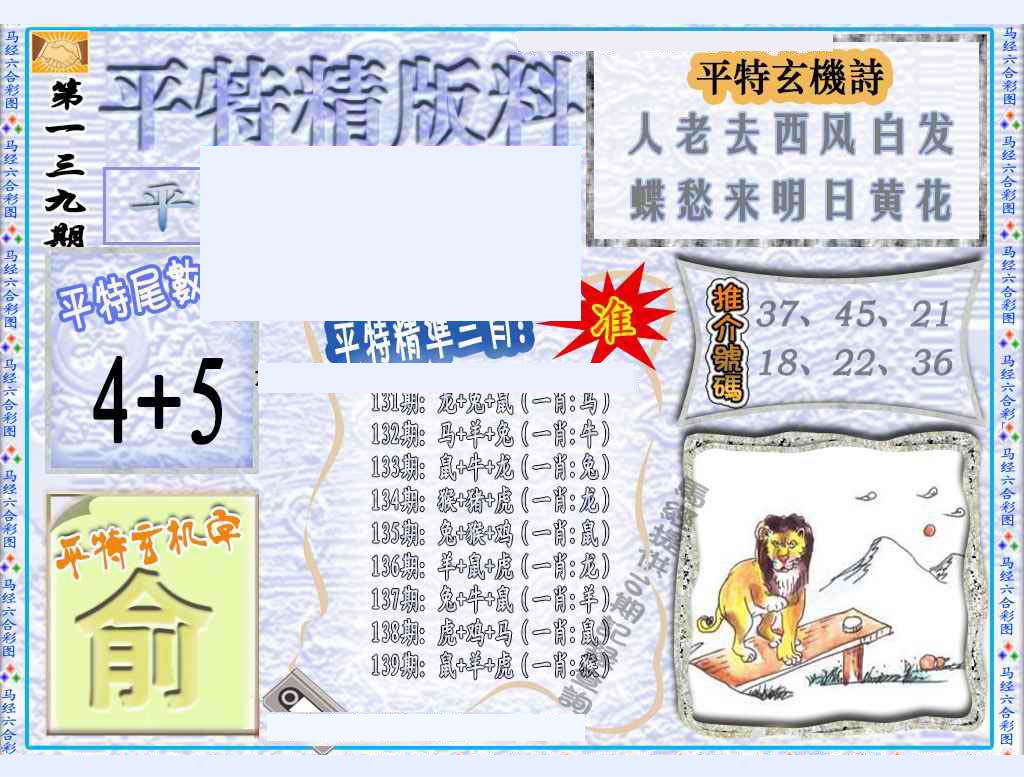 第一三九期
平特精版料
平
平特玄機詩
人老去西风白发
蝶愁来明日黄花
平特尾數
4+5
平特精準三肖!
准
131期: 龙+兔+鼠 (一肖:马)
132期: 马+羊+兔 (一肖:牛)
133期: 鼠+牛+龙 (一肖:兔)
134期: 猴+猪+虎 (一肖:龙)
135期: 兔+猴+鸡 (一肖:鼠)
136期: 羊+鼠+虎 (一肖:龙)
137期: 兔+牛+鼠 (一肖:羊)
138期: 虎+鸡+马 (一肖:鼠)
139期: 鼠+羊+虎 (一肖:猴)
推介號碼
37、45、21
18、22、36
平特玄机字
俞
马经六合彩图
马经六合彩图
马经六合彩图
马经六合彩图
马经六合彩图
马经六合彩图
马经六合彩
马经六合彩图
马经六合彩图
马经六合彩图
马经六合彩图
马经六合彩图
马经六合彩图
马经六合彩图